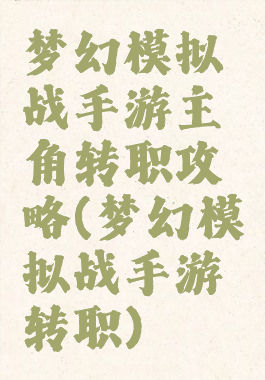 梦幻模拟
战手游主
角转职攻
略(梦幻模
拟战手游
转职)